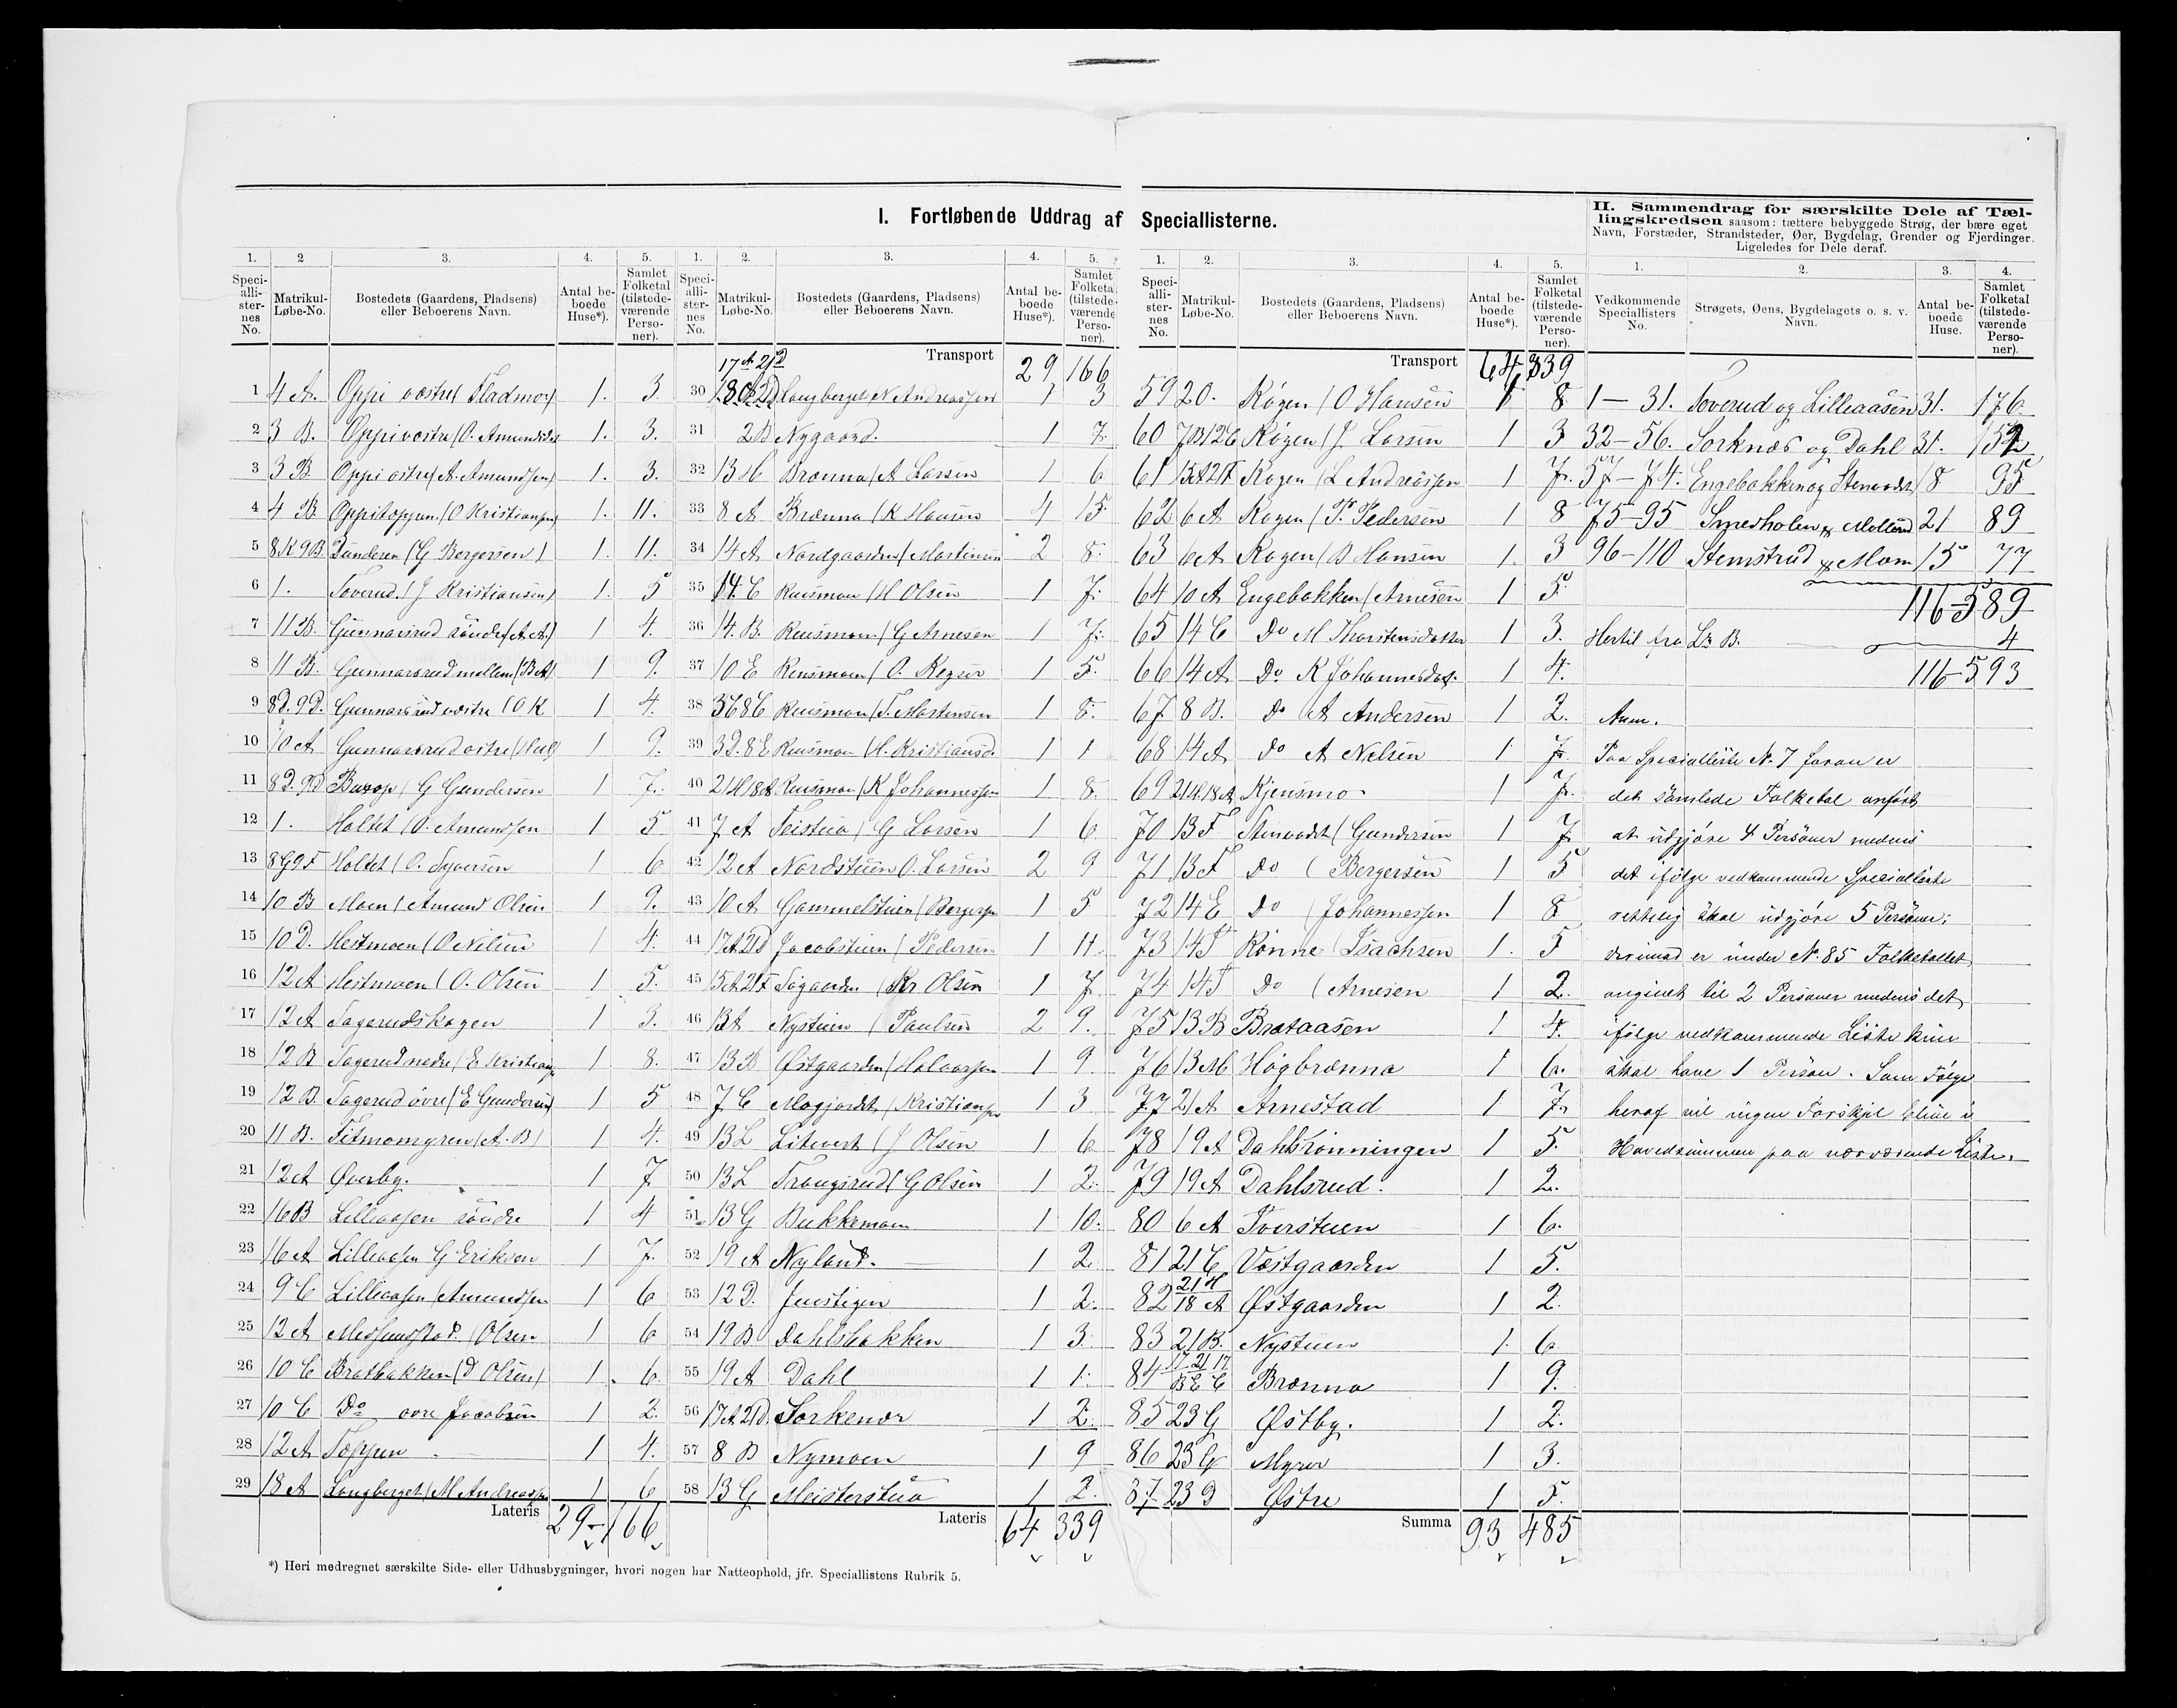 I. Fortløbende Uddrag af Speciallisterne.
1. 2 3. 4. 5.
Speciallisternes No. Matrikul-Løbe-No. Bostedets (Gaardens, Pladsens) eller Beboerens Navn. Antal beboede Huse*). Samlet Folketal (tilstedeværende Personer).
1 4 A. Oppi vestre 1. 3.
2 3 B. Oppi vestre (O. 1. 3.
3 3 B Oppi østre (A. Amundsen) 1. 3.
4 4 B (O Kristiansen) 1. 11.
5 8K 9B (G Bergersen) 1. 11.
6 1. Toverud. (J Kristiansen) 1. 5
7 11 B. Gunnarsrud søndre (A. A.) 1 4.
8 11 B. Gunnarsrud mellem (B A) 1 9.
9 8D. 9D. Gunnarsrud vestre (O K 1 4.
10 10 A Gunnarsrud østre 1 9.
11 8D. 9D G Gundersen 1 7.
12 1. Holtet (O. Amundsen 1 5
13 8G 9F Holtet (O. Syversen 1 6
14 10 B Moen (Amund Olsen 1 9.
15 10 D. Hestmoen (O Nelsen 1 4.
16 12 A Hestmoen (O. Olsen 1 5.
17 12 A Tagerudskogen 1 3.
18 12 B Tagerud nedre (E Kristians 1 8.
19 12 B. Tagerud øvre (E Gundersen) 1 5
20 11 B. (A. B) 1 4.
21 12 A Øverby. 1 7
22 16 B Lilleaasen søndre 1 4
23 16 A Lilleaasen G Eriksen 1 7.
24 9 C Lilleaasen (Amundsen 1 6
25 12 A (Olsen 1 6
26 10 C Bratbakken (D Olsen) 1. 6.
27 10 C Do øvre Jacobsen 1 2.
28 12 A Toppen 1 4.
29 18 A Langberget (M Andreasen 1 6
Lateris 29 - 166
1. 2. 3. 4. 5.
Speciallisternes No. Matrikul-Løbe-No. Bostedets (Gaardens, Pladsens) eller Beboerens Navn. Antal beboede Huse*). Samlet Folketal (tilstedeværende Personer).
17 A 21 D Transport 29 166
30 Langberget N Andreassen 1 3
31 2 B Nygaard. 1 7.
32 13 H Brænna (A Larsen 1 6
33 8 A Brænna (K Hansen 4 15
34 14 A Nordgaarden (Martinsen 2 8.
35 14. C Rensmoen (H Olsen 1 7.
36 14. B. Rensmoen (G Arnesen 1 7.
37 10 E Rensmoen (O. Keyser 1 5.
38 3C 8C Rensmoen (T. Mortensen 1 8.
39 3D. 8E Rensmoen (H. Kristiansd. 1 1
40 21H 18A Rensmoen (K Johannessen 1 8.
41 7 A Teistua (G Larsen 1 6
42 12 A Nordstuen O. Larsen 2 9
43 10 A Gammelstuen (Bergersen 1 5
44 17A 21D Jacobstuen (Pedersen 1 11.
45 15A 21F Sogaarden (Kr Olsen 1 7
46 13 A Nystuen (Paulsen 2 9.
47 13 B Østgaarden (Halvorsen 1 9.
48 7 C Mogjordet (Kristiansen 1 3
49 13 L (J Olsen 1 6
50 13 L Trangsrud (G Olsen 1 2.
51 13 G Bukkemoen 1 10.
52 19 A Nyland. 1 2.
53 12 D. Jenstigen 1 2.
54 19 B Dahlsbakken 1 3.
55 19 A Dahl 1 1.
56 17A 21D. Sorkenæs 1 2.
57 8 B Nymoen 1 9
58 13 G Meisterstua 1 2.
Lateris 64 339
1. 2. 3. 4. 5.
Speciallisternes No. Matrikul-Løbe-No. Bostedets (Gaardens, Pladsens) eller Beboerens Navn. Antal beboede Huse*). Samlet Folketal (tilstedeværende Personer).
Transport 64 339
59 20. Kogen (O Hansen 1 8
60 7B 12C Kogen (J. Larsen 1 3
61 15A 21F Kogen (L Andreassen 1 7.
62 6 A Kogen (P. Pedersen 1 8
63 6 A Kogen (B Hansen 1. 3
64 10 A Engebakken (Arnesen 1 5.
65 14 C Do M Thorstensdatter 1 3.
66 14 A Do K Johannesdat. 1 4.
67 8 B. Do A Andersen 1 2.
68 14 A Do A Nelsen 1 7.
69 21H. 18 A Kjensmo 1 7.
70 13 F Stenvadet (Gundersen 1 7
71 13 F Do (Bergersen 1 5
72 14 E Do (Johannessen 1 8
73 14 F Rønne (Isachsen 1. 5
74 14 F Do (Arnesen 1 2.
75 13 B Brataasen 1 4.
76 13 M Høgbrænna 1 6.
77 21 A Arnestad 1 7.
78 19 A Dahlsrønningen 1 5.
79 19 A Dahlsrud. 1 2.
80 6 A Toverstuen 1 6.
81 21 C Vestgaarden 1 5.
82 21 H 18 A Østgaarden 1 2.
83 21 B. Nystuen 1. 6.
84 17 21 17 B E C Brænna 1 9.
85 23 G Østby. 1 2.
86 23 G Myrer 1 3.
87 23 D Østre 1 5.
Summa 93 485
II. Sammendrag for særskilte Dele af Tællingskredsen saasom: tættere bebyggede Strøg, der bære eget
Navn, Forstæder, Strandsteder, Øer, Bygdelag, Grender og Fjerdinger.
Ligeledes for Dele deraf.
1. 2. 3. 4.
Vedkommende Speciallisters No. Strøgets, Øens, Bygdelagets o. s. v. Navn. Antal beboede Huse. Samlet Folketal (tilstedeværende Personer).
1 — 31. Toverud og Lilleaasen 31. 176.
32 — 56. Sorknæs og Dahl 31. 152
57 — 74. Engebakken og Stenvadet 18 95
75 — 95 Smedholen & 21 89
96 — 110 Stemsrud & Moen 15 77
116 - 589
Hertil fra Lr B. 4
116 - 593
Anm.
Paa Specialliste No. 7 foran er
det samlede Folketal anført
at udgjøre 4 Personer medens
det ifølge vedkommende Specialliste
rettelig skal udgjøre 5 Personer;
derimod er under No. 85 Folketallet
angivet til 2 Personer medens det
ifølge vedkommende Liste kun
skal have 1 Person. Som Følge
heraf vil ingen Forskjel blive i
Hovedsummen paa nærværende Liste.
*) Heri medregnet særskilte Side- eller Udhusbygninger, hvori nogen har Natteophold, jfr. Speciallistens Rubrik 5.